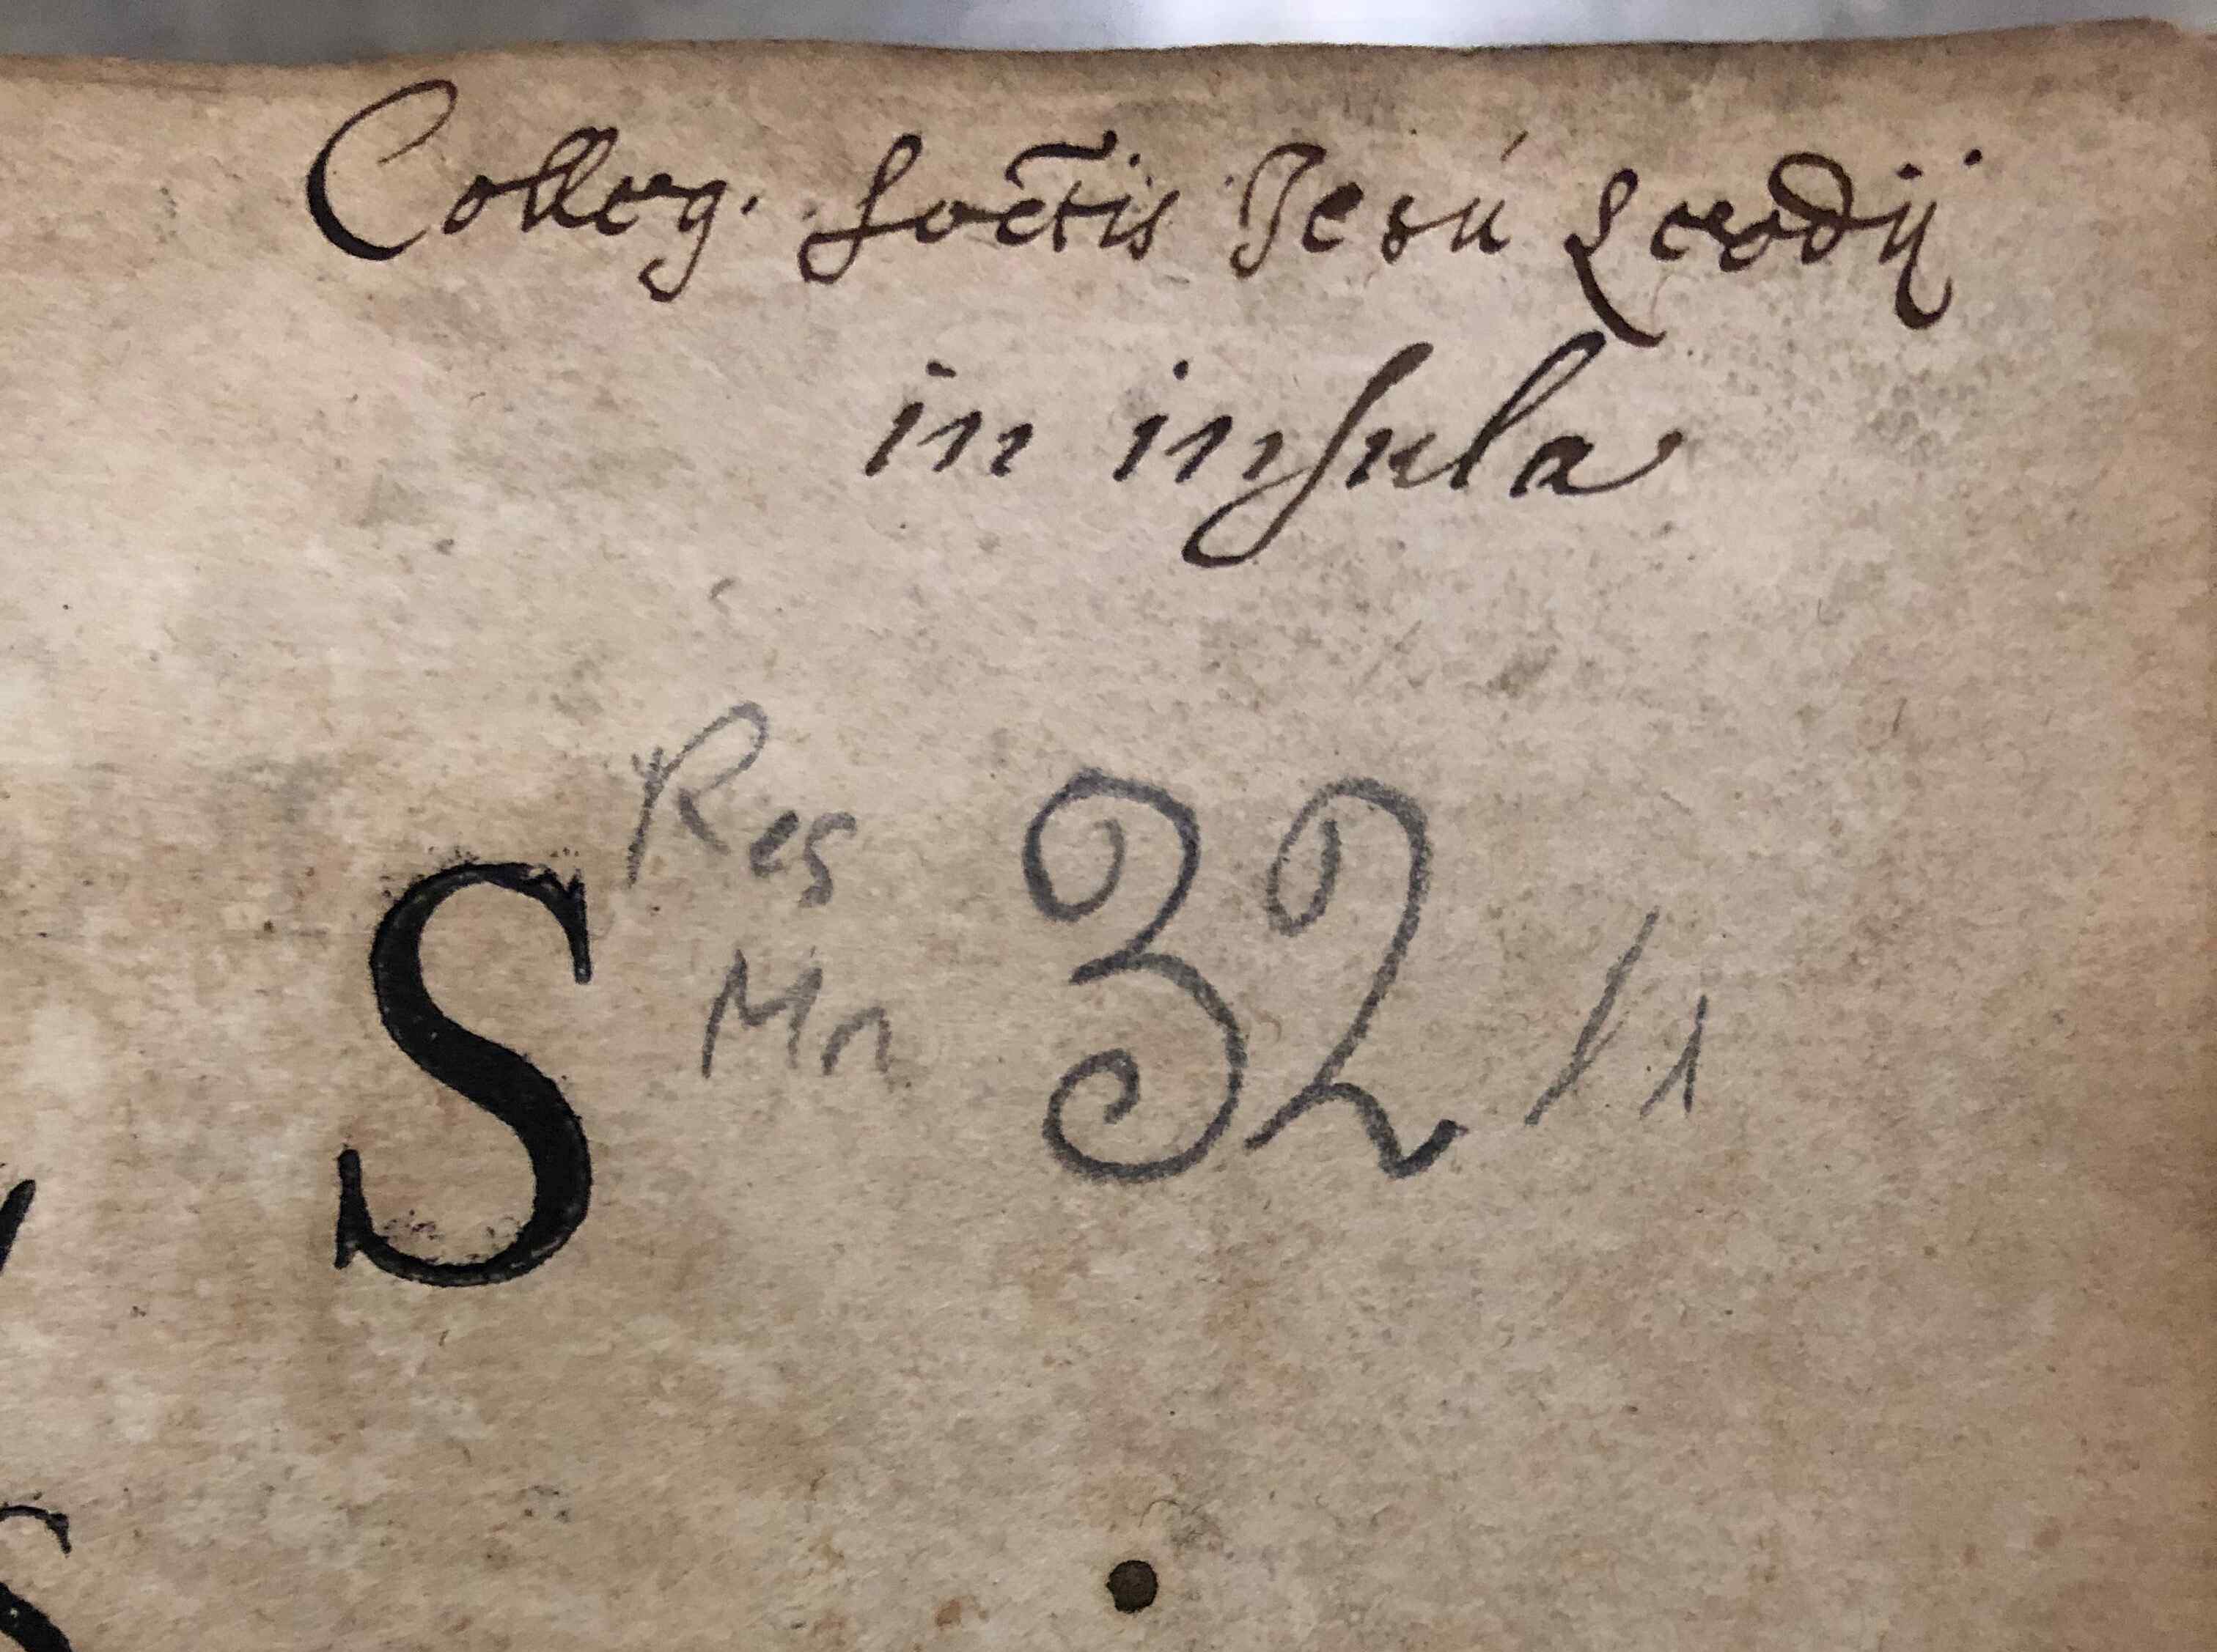 Colleg. Soctis Jesu Leodij
in insula
Res
S
Mn 32/1